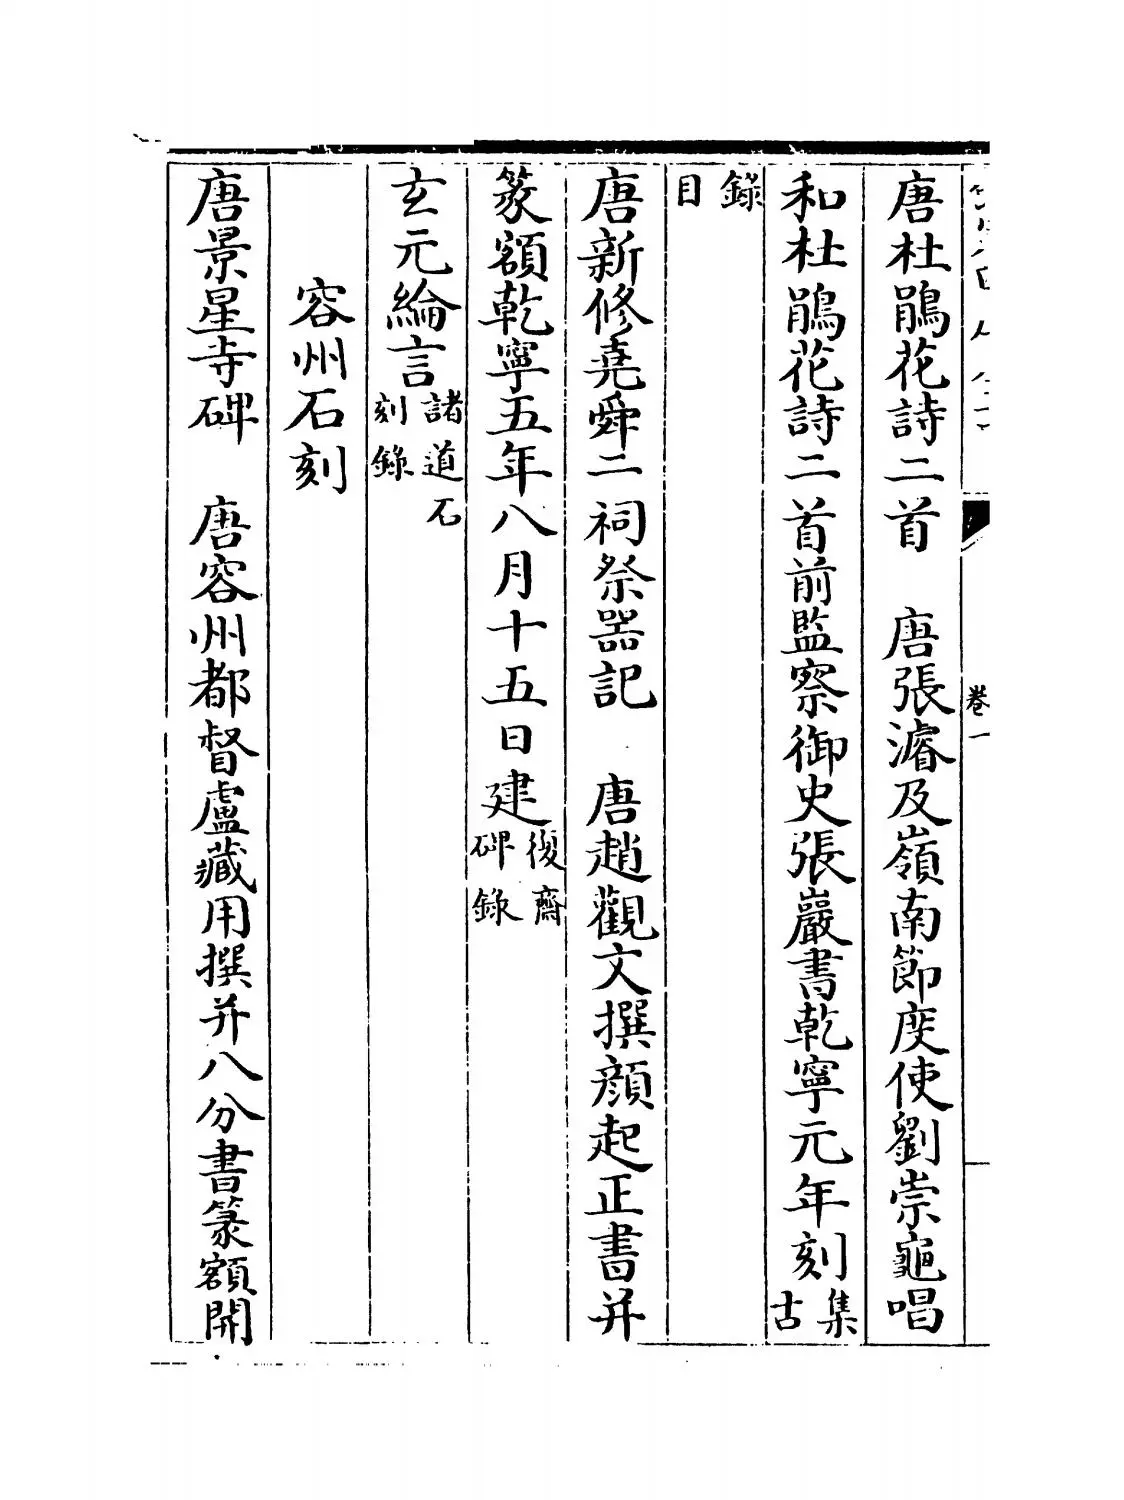 唐杜鵑花詩二首　唐張濬及嶺南節度使劉崇龜唱
和杜鵑花詩二首前監察御史張巖書乾寧元年刻集古
錄目
唐新修堯舜二祠祭器記　唐趙觀文撰顔起正書并
篆額乾寧五年八月十五日建復齋碑錄
玄元綸言諸道石刻錄
容州石刻
唐景星寺碑　唐容州都督盧藏用撰并八分書篆額開
卷一